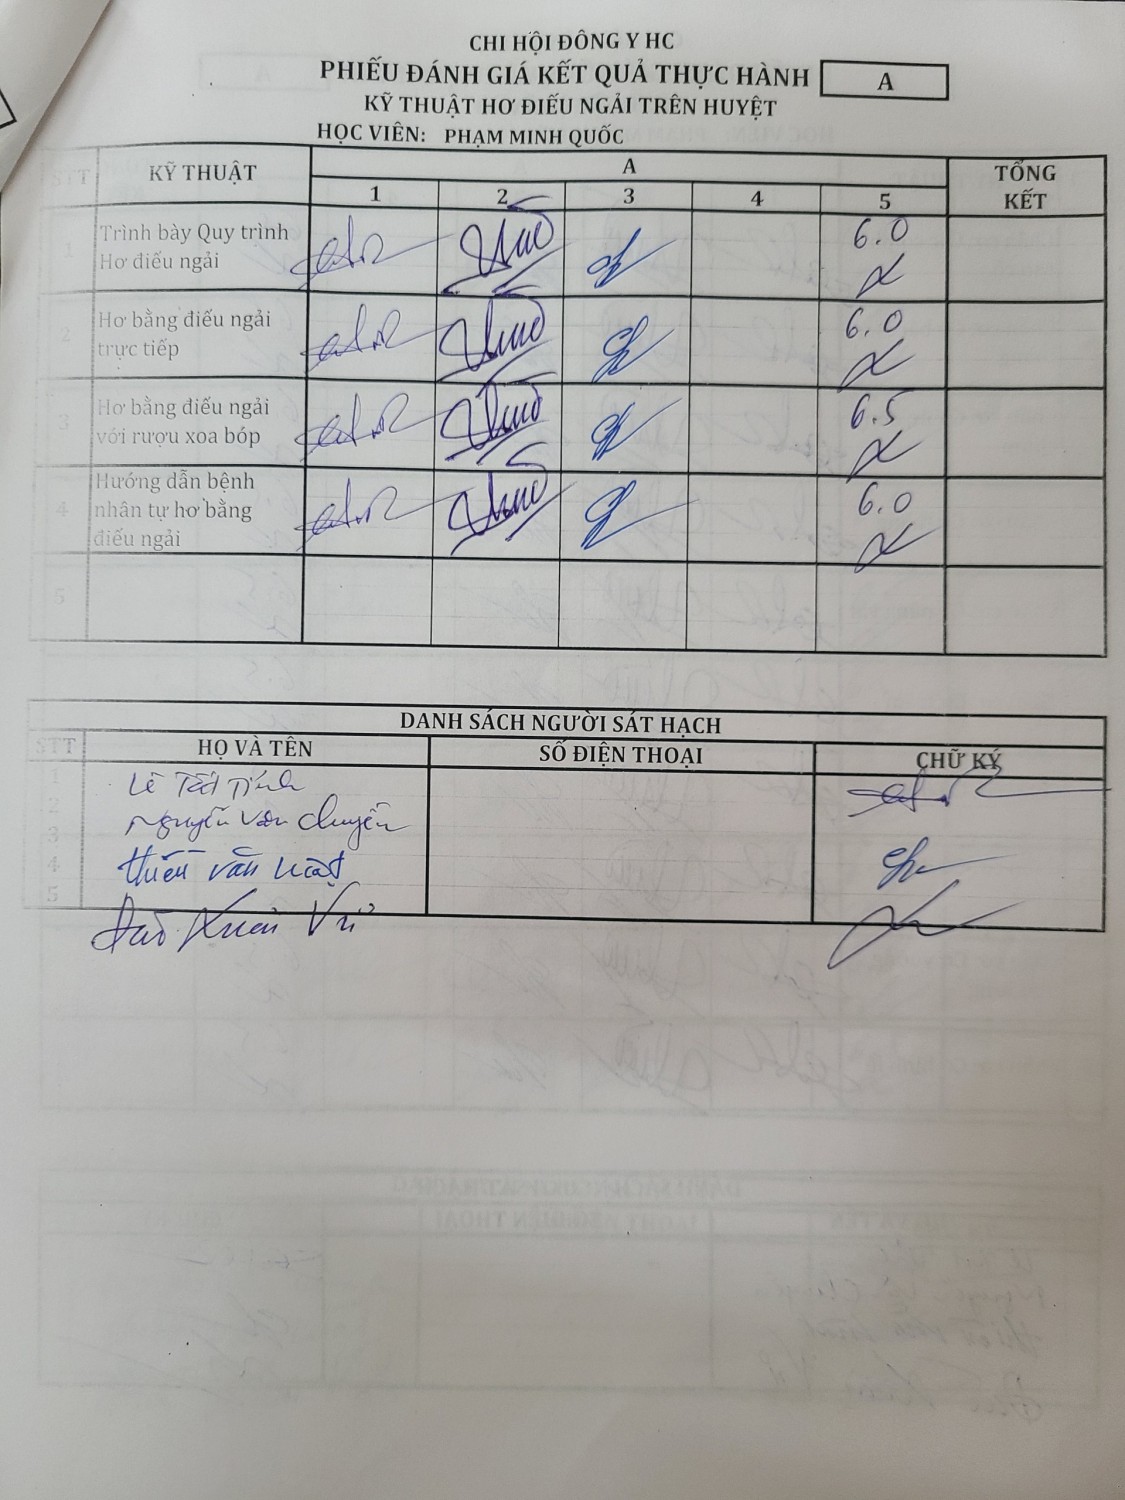 CHI HỘI ĐÔNG Y HC
PHIẾU ĐÁNH GIÁ KẾT QUẢ THỰC HÀNH
A
KỸ THUẬT HƠ ĐIẾU NGẢI TRÊN HUYỆT
HỌC VIÊN: PHẠM MINH QUỐC
STT KỸ THUẬT A TỔNG KẾT
1 2 3 4 5
1 Trình bày Quy trình 6.0
Hơ điếu ngải
2 Hơ bằng điếu ngải 6.0
trực tiếp
3 Hơ bằng điếu ngải 6.5
với rượu xoa bóp
4 Hướng dẫn bệnh 6.0
nhân tự hơ bằng
điếu ngải
5
DANH SÁCH NGƯỜI SÁT HẠCH
STT HỌ VÀ TÊN SỐ ĐIỆN THOẠI CHỮ KÝ
1 Lê Tất
2 Nguyễn Văn Chuyên
3
4 Thiều Văn
5
Xuân Vũ